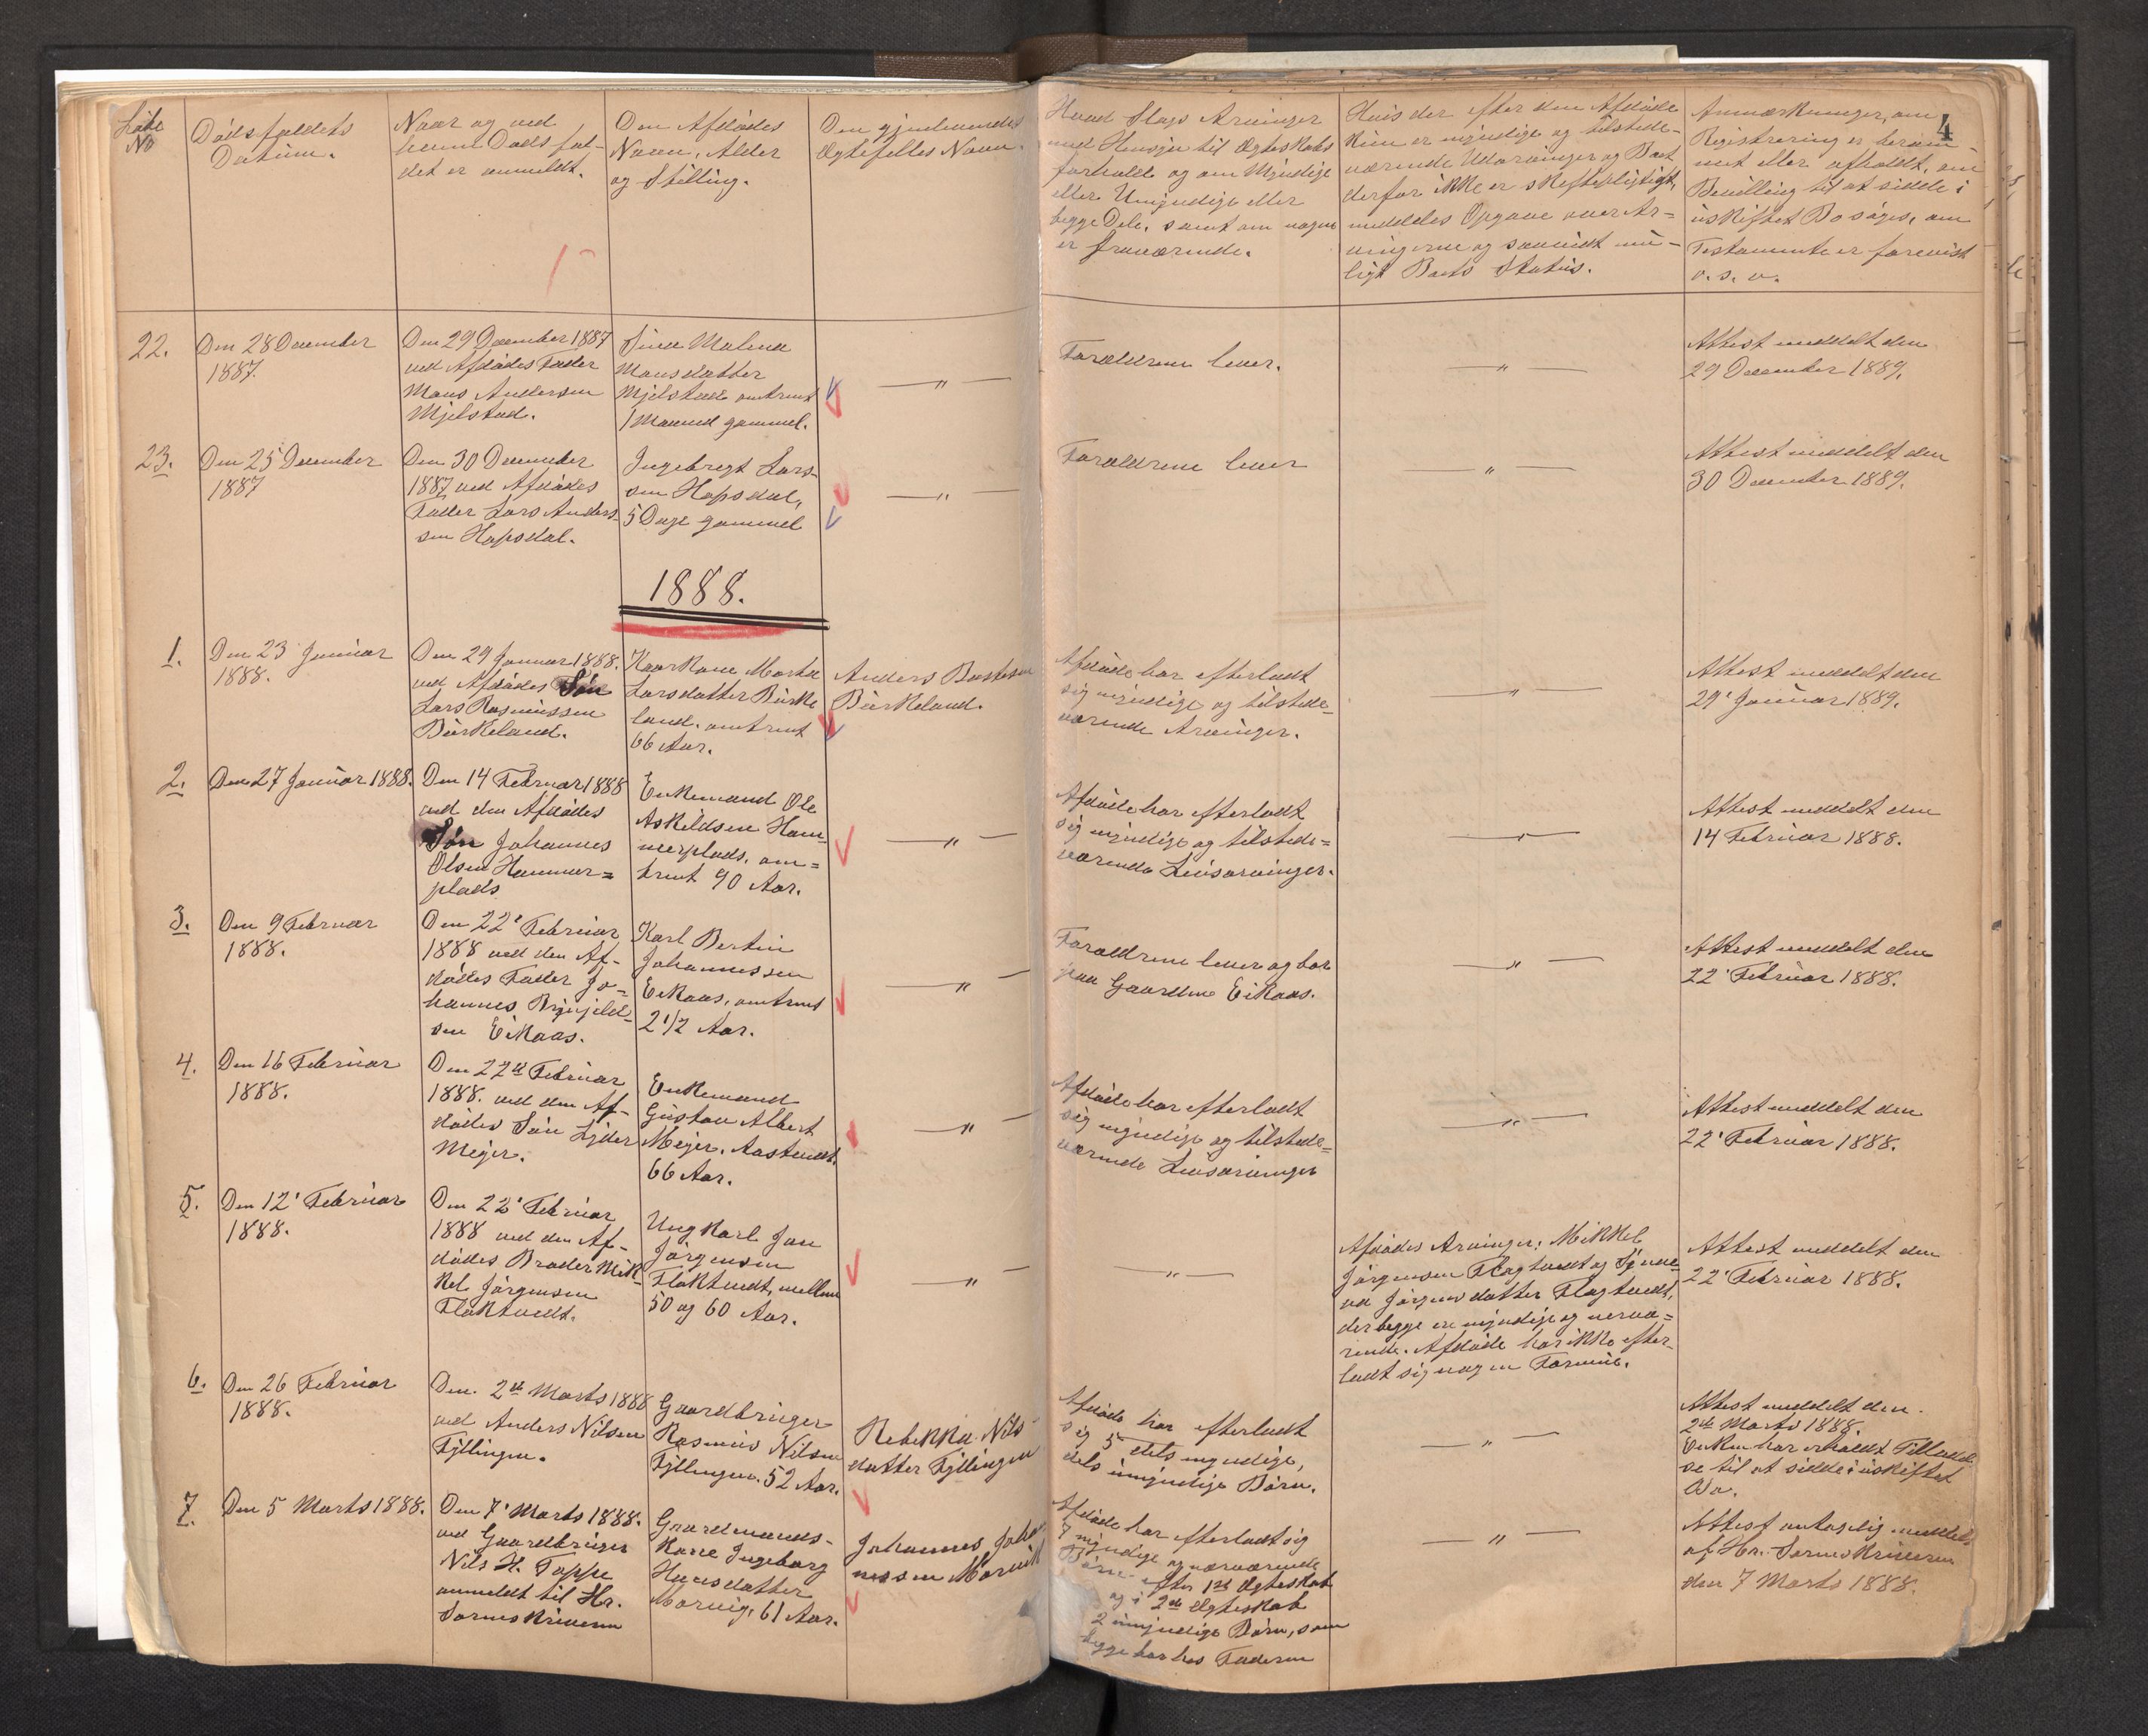 4
Löbe
No
Dödsfaldets
Datum.
Naar og ved
hvem Dødsfal-
det er anmeldt.
Den Afdødes
Navn, Alder
og Stilling.
Den gjenlevendes
Ægtefelles Navn.
Hvad Slags Arvinger
med Hensyn til Ægteskabs
forhold og om Myndige
eller Umyndige eller
begge Dele, samt om nogen
er fraværende.
Hvis der efter den Afdøde
kun er myndige og tilstede-
værende Udarvinger og Boet
derfor ikke er skiftepligtigt,
meddeles Opgave over Ar-
vingerne og saavidt mu-
ligt Boets Status.
Anmærkninger, om
Registrering er beram-
met eller afholdt, om
Bevilling til at sidde i
uskiftet Bo søges, om
Testamente er forevist
o. s. v.
22.
Den 28 December
1887.
Den 29 December 1887
ved Afdødes Fader
Mons Andersen
Mjelstad.
Sina Malena
Monsdatter
Mjelstad omtrent
1 Maaned gammel.
— " —
Forældrene lever.
— " —
Attest meddelt den
29 December 1889.
23.
Den 25 December
1887
Den 30 December
1887 ved Afdødes
Fader Lars Anders-
sen Hopsdal.
Ingebregt Lars-
sen Hopsdal,
5 Dage gammel
— " —
Forældrene lever
— " —
Attest meddelt den
30 December 1889.
1888.
1.
Den 23 Januar
1888.
Den 29 Januar 1888.
ved Afdødes Søn
Lars Rasmussen
Birkeland.
Kaarkone Marta
Larsdatter Birke
land. omtrent
66 Aar.
Anders
Birkeland.
Afdøde har efterladt
sig myndige og tilstede-
værende Arvinger.
— " —
Attest meddelt den
29' Januar 1889.
2.
Den 27 Januar 1888.
Den 14 Februar 1888
ved den Afdødes
Søn Johannes
Olsen Hammer=
plads
Enkemand Ole
Askildsen Ham-
merplads, om=
trent 90 Aar.
— " —
Afdøde har efterladt
sig myndige og tilstede=
værende Livsarvinger.
— " —
Attest meddelt den
14 Februar 1888.
3.
Den 9 Februar
1888.
Den 22' Februar
1888 ved den Af-
dødes Fader Jo=
hannes Brynjeld-
sen Eikaas.
Karl Bertin
Johannessen
Eikaas, omtrent
2 1/2 Aar.
— " —
Forældrene lever og bor
paa Gaarden Eikaas.
— " —
Attest meddelt den
22' Februar 1888.
4.
Den 16 Februar
1888.
Den 22de Februar
1888. ved den Af-
dødes Søn Lyder
Mejer.
Enkemand
Gustav Albert
Mejer. Aastvedt.
66 Aar.
— " —
Afdøde har efterladt
sig myndige og tilstede=
værende Livsarvinger
— " —
Attest meddelt den
22' Februar 1888.
5.
Den 12' Februar
1888.
Den 22' Februar
1888 ved den Af-
dødes Broder Mik-
kel Jörgensen
Flaktvedt.
Ungkarl Jon
Jörgensen
Flaktvedt, mellem
50 og 60 Aar.
— " —
— " —
Afdødes Arvinger: Mikkel
Jörgensen Flagtvedt og
Jørgensdatter Flagtvedt,
der begge er myndige og nærvæ=
rende. Afdøde har ikke efter-
ladt sig nogen Formue.
Attest meddelt den
22' Februar 1888.
6.
Den 26 Februar
1888.
Den. 2de Marts 1888
ved Anders Nilsen
Fyllingen.
Gaardbruger
Rasmus Nilsen
Fyllingen. 52 Aar.
Rebekka Nils
datter Fyllingen
Afdøde har efterladt
sig 5 dels myndige,
dels umyndige Börn.
— " —
Attest meddelt den.
2de Marts 1888.
Enken har erholdt Tilladel
se til at sidde i uskiftet
Bo.
7.
Den 5 Marts 1888.
Den 7' Marts 1888.
ved Gaardbruger
Nils H. Toppe
anmeldt til Hr.
Sorenskriveren
Gaardmands-
kone Ingeborg
Hansdatter
Morvig, 61 Aar.
Johannes Johan
nessen Morvik
Afdøde har efterladt sig
7 myndige og nærværende
Börn efter 1ste Ægteskab
og i 2det Ægteskab
2 umyndige Börn, som
begge bor hos Faderen
— " —
Attest antagelig meddelt
af Hr. Sorenskriveren
den 7 Marts 1888.